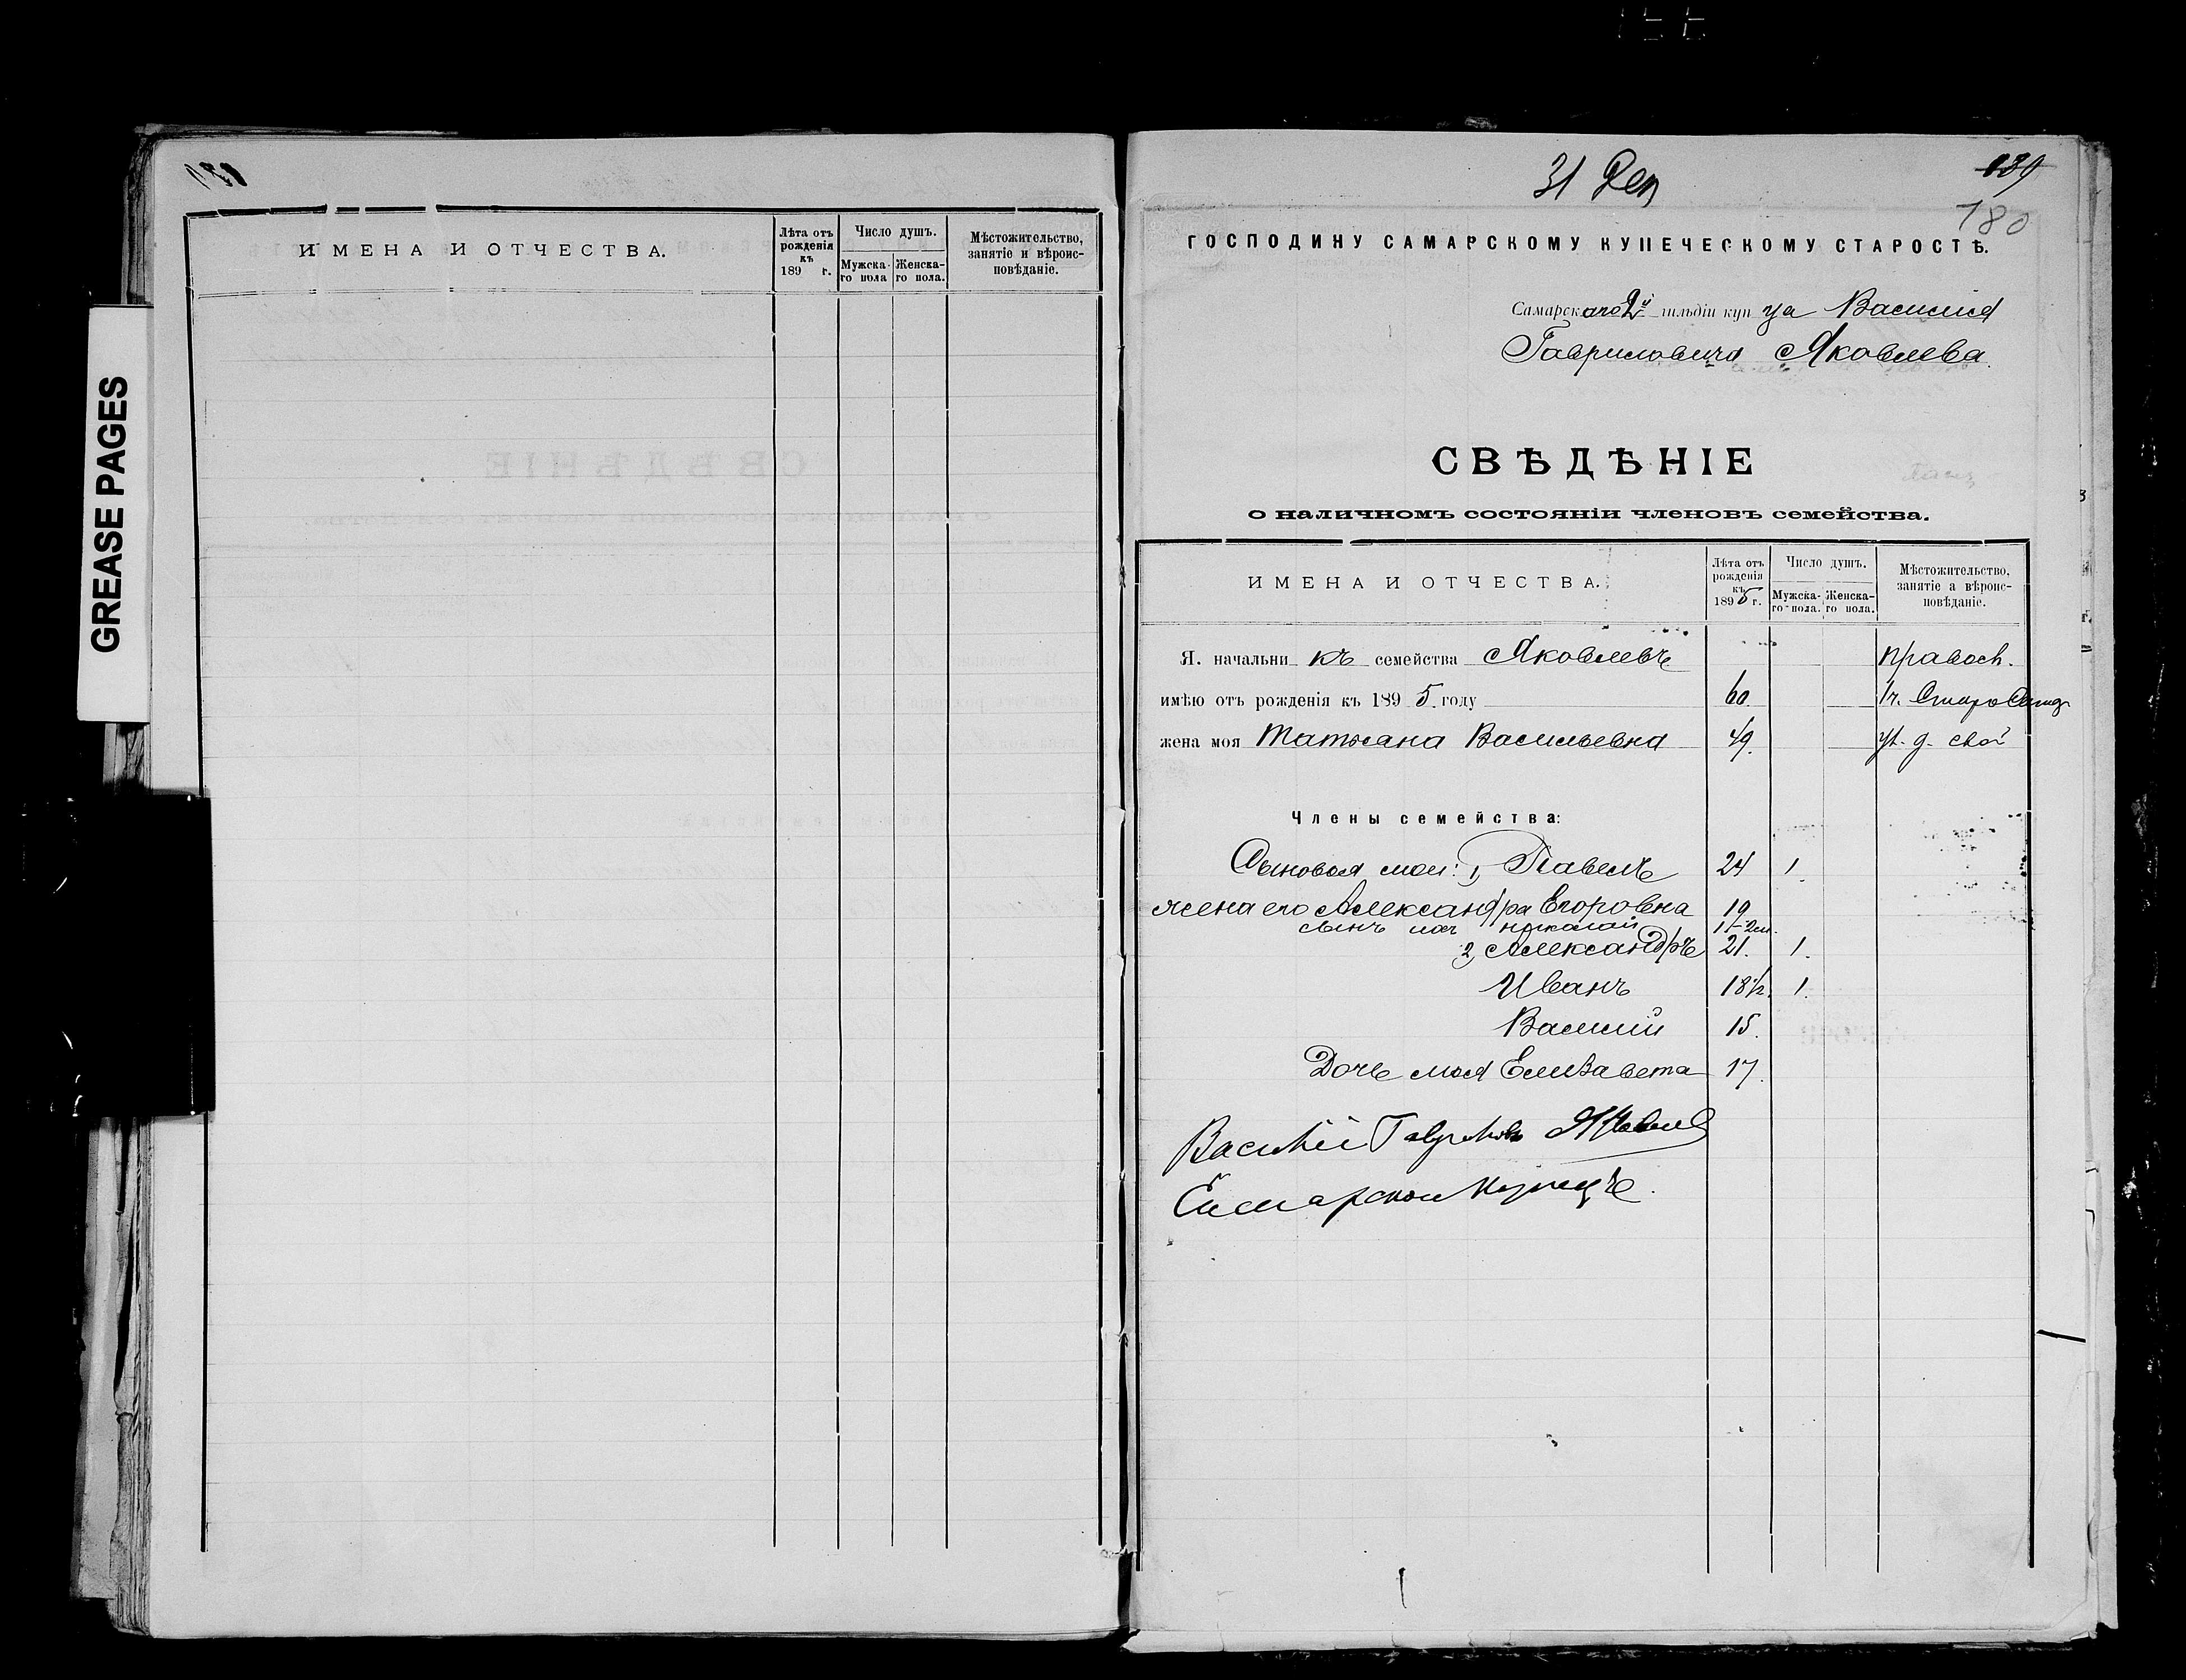 GREASE PAGES
ИМЕНА И ОТЧЕСТВА.
Лѣта отъ
рожденія
къ
189 г.
Число душъ.
Мужска-
го пола
Женска-
го пола.
Мѣстожительство,
занятіе и вѣроис-
повѣданіе.
31 Дек
139
180
ГОСПОДИНУ САМАРСКОМУ КУПЕЧЕСКОМУ СТАРОСТѢ.
Самарскаго 2й гильдіи купца Василія
Гавриловича Яковлева.
СВѢДѢНІЕ
о наличномъ состояніи членовъ семейства.
ИМЕНА И ОТЧЕСТВА.
Лѣта отъ
рожденія
къ
1895 г.
Число душъ.
Мужска-
го пола.
Женска-
го пола.
Мѣстожительство,
занятіе а вѣроис-
повѣданіе.
Я. начальникъ семейства Яковлевъ правосл.
имѣю отъ рожденія къ 1895 году 60 1ч.
жена моя Татьяна Васильевна 49. ул. д. свой
Члены семейства:
Сыновья мои: 1, Павелъ 24 1.
жена его Александра Егоровна 19
сынъ ихъ Николай 1г-2м.
2, Александръ 21. 1.
Иванъ 18½. 1.
Василий 15.
Дочь моя Елизавета 17.
Василій Гаврилов Яковлев
Самарской Купецъ.